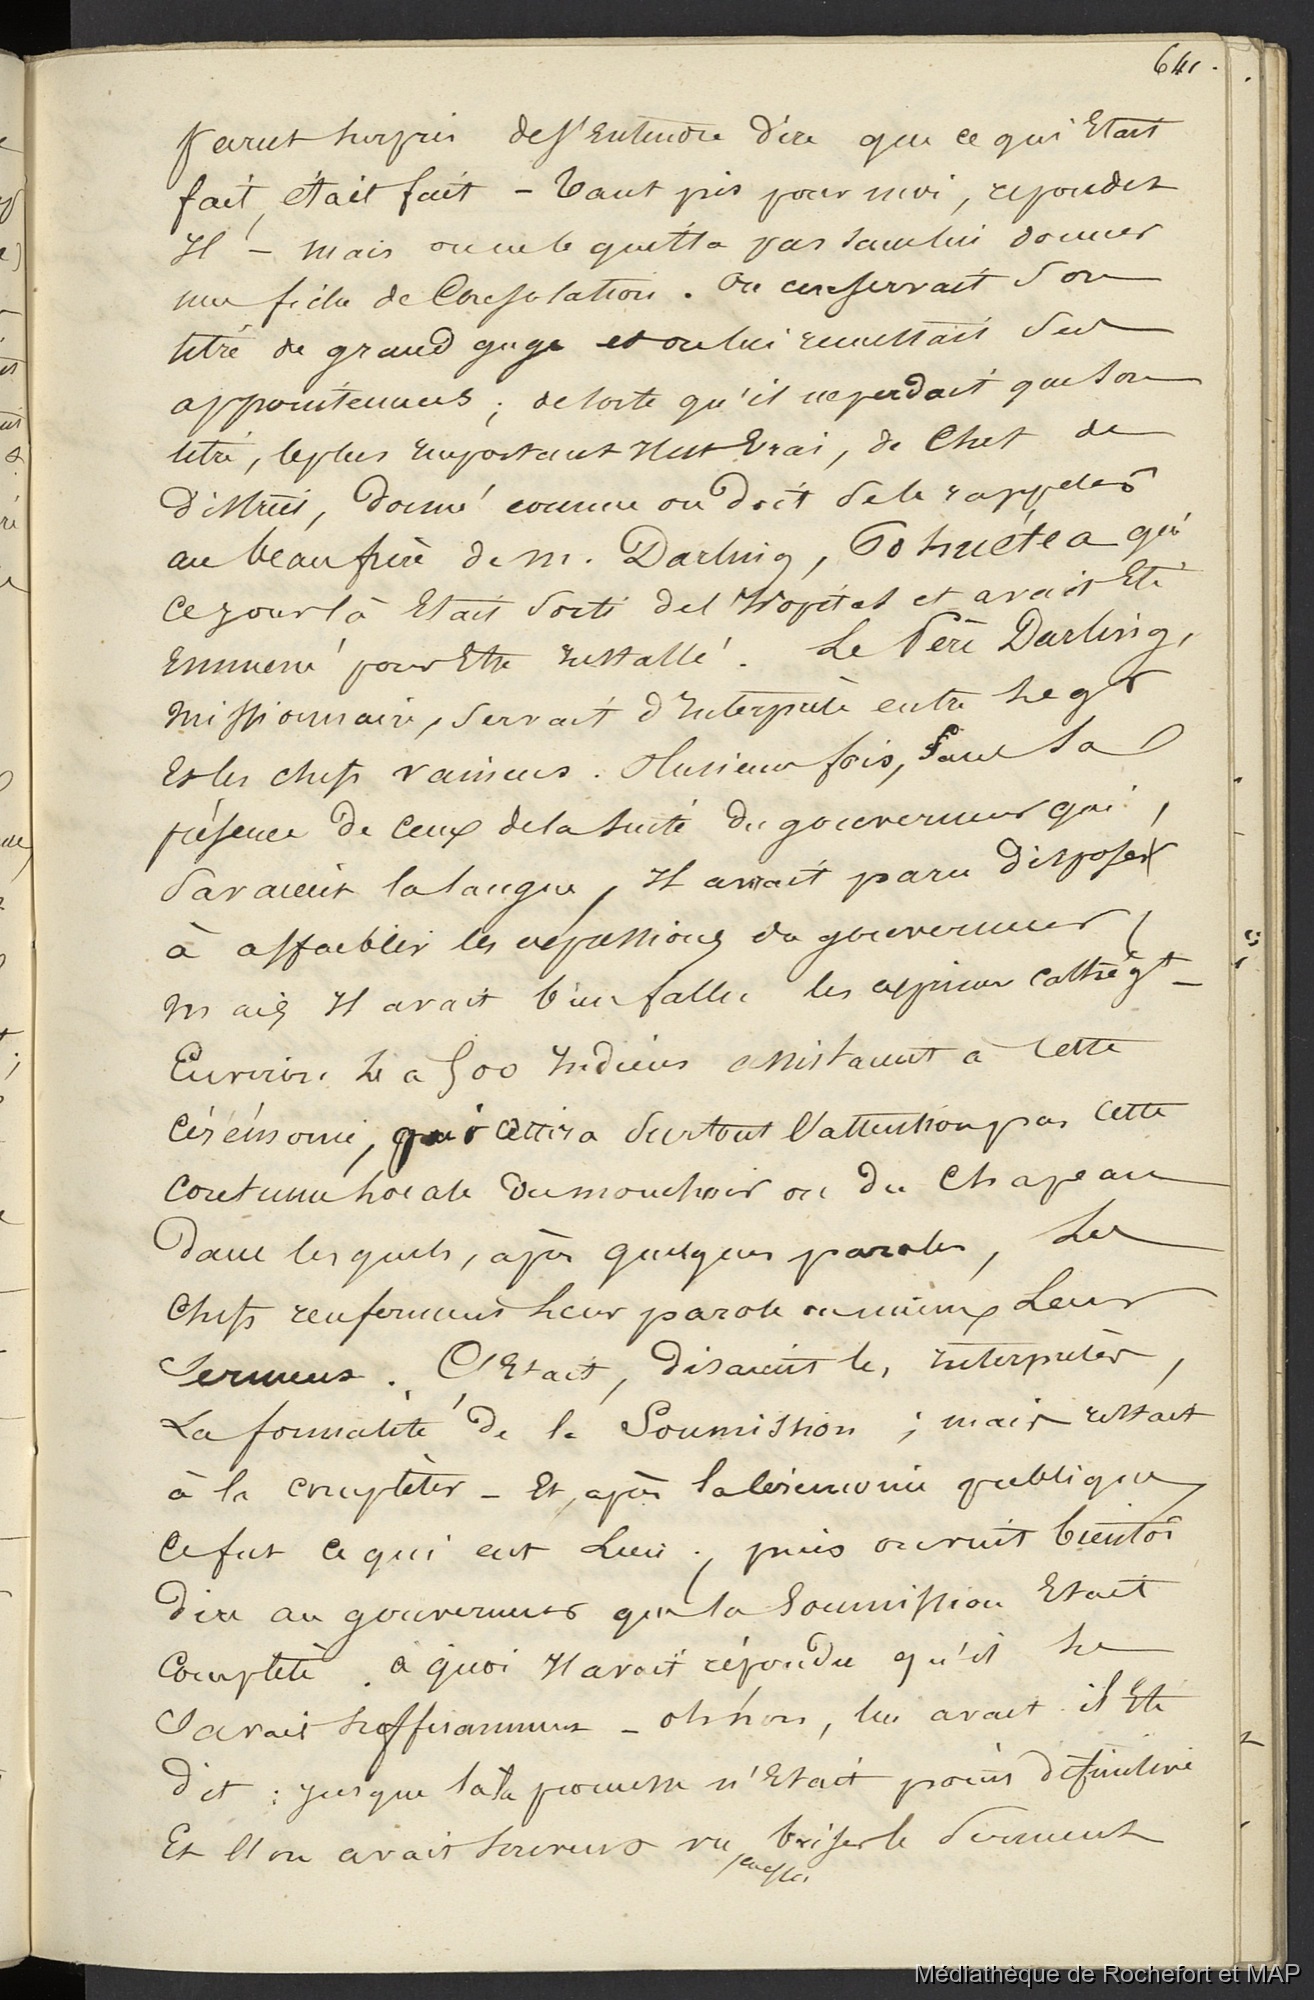 641.
parut surpris de s'Entendre dire que ce qui Etait
fait, était fait – tant pis pour moi, repondit
Il – mais on ne le quitta pas sans lui donner
une fiche de Consolation. On conservait Son
titre de grand juge et on lui remettait Ses
appointements ; de sorte qu'il ne perdait que Son
titre, le plus important Il est Vrai, de Chef de
District, donné comme on doit Se le rappeler
au beau frère de M. Darling, qui
ce jour là Etait Sorti de l'Hopital et avait Eté
Emmené pour Etre Installé. Le Père Darling,
Missionnaire, Servait d'Interprète entre le gr
Et les chefs vaincus. Plusieurs fois, Sans la
présence de ceux de la suite du gouverneur qui,
Savaient la langue, Il aurait paru disposé
à affaiblir les expressions du gouverneur,
Mais Il avait bien fallu les exprimer
Environ 4 a 500 Indiens assistaient à Cette
Cérémonie, qui attira Surtout l'attention par Cette
Coutume locale du mouchoir ou du Chapeau
Dans lesquels, après quelques paroles, Les
Chefs renferment leur parole ou mieux Leur
Serment. C'Etait, disaient les Interprètes,
La formalité de la Soumission ; mais restait
à la compléter – Et, après la Cérémonie publique
Ce fut ce qui eut Lieu ; puis on vint bientôt
dire au gouverneur que la Soumission Etait
Complète. à quoi Il avait répondu qu'il le
Savait suffisamment – oh non, lui avait-il Eté
dit : jusque là la promesse n'Etait point définitive
Et l'on avait souvent vu briser le Serment
Médiathèque de Rochefort et MAP